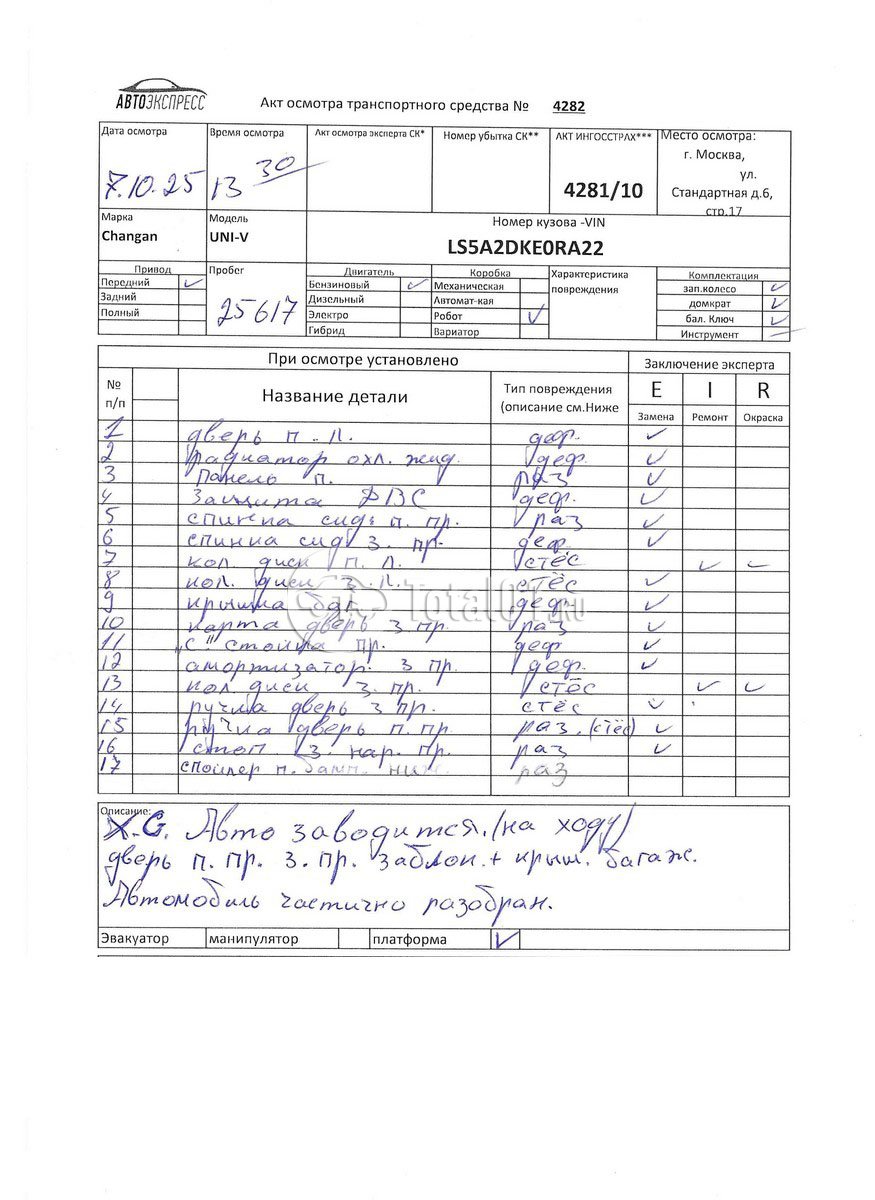 АВТОЭКСПРЕСС
Акт осмотра транспортного средства № 4282
Дата осмотра Время осмотра Акт осмотра эксперта СК* Номер убытка СК** АКТ ИНГОССТРАХ*** Место осмотра:
7.10.25 13 30 4281/10 г. Москва, ул. Стандартная д.6, стр.17
Марка Модель Номер кузова -VIN
Changan UNI-V LS5A2DKE0RA22
Привод Пробег Двигатель Коробка Характеристика повреждения Комплектация
Передний ✓ 25617 Бензиновый ✓ Механическая зап.колесо ✓
Задний Дизельный Автомат-кая домкрат ✓
Полный Электро Робот ✓ бал. Ключ ✓
Гибрид Вариатор Инструмент —
При осмотре установлено Заключение эксперта
№ п/п Название детали Тип повреждения (описание см.Ниже E I R
Замена Ремонт Окраска
1 дверь п. л. деф. ✓
2 радиатор охл. жид. деф. ✓
3 панель п. раз ✓
4 Защита ДВС деф. ✓
5 спинка сид. п. пр. раз ✓
6 спинка сид. з. пр. деф. ✓
7 кол. диск п. л. стёс ✓ ✓
8 кол. диск з. л. стёс ✓
9 крышка баг. деф. ✓
10 карта дверь з пр. раз ✓
11 „С" стойка пр. деф ✓
12 амортизатор. з пр. деф. ✓
13 кол диск з. пр. стёс ✓ ✓
14 ручка дверь з пр. стёс ✓
15 ручка дверь п. пр. раз. (стёс) ✓
16 стоп. з. нар. пр. раз ✓
17 спойлер п. бамп. ниж. раз
Описание:
Х.G. Авто заводится. (на ходу)
дверь п. пр. з. пр. заблок. + крыш. багаж.
Автомобиль частично разобран.
Эвакуатор манипулятор платформа ✓
Total01.RU